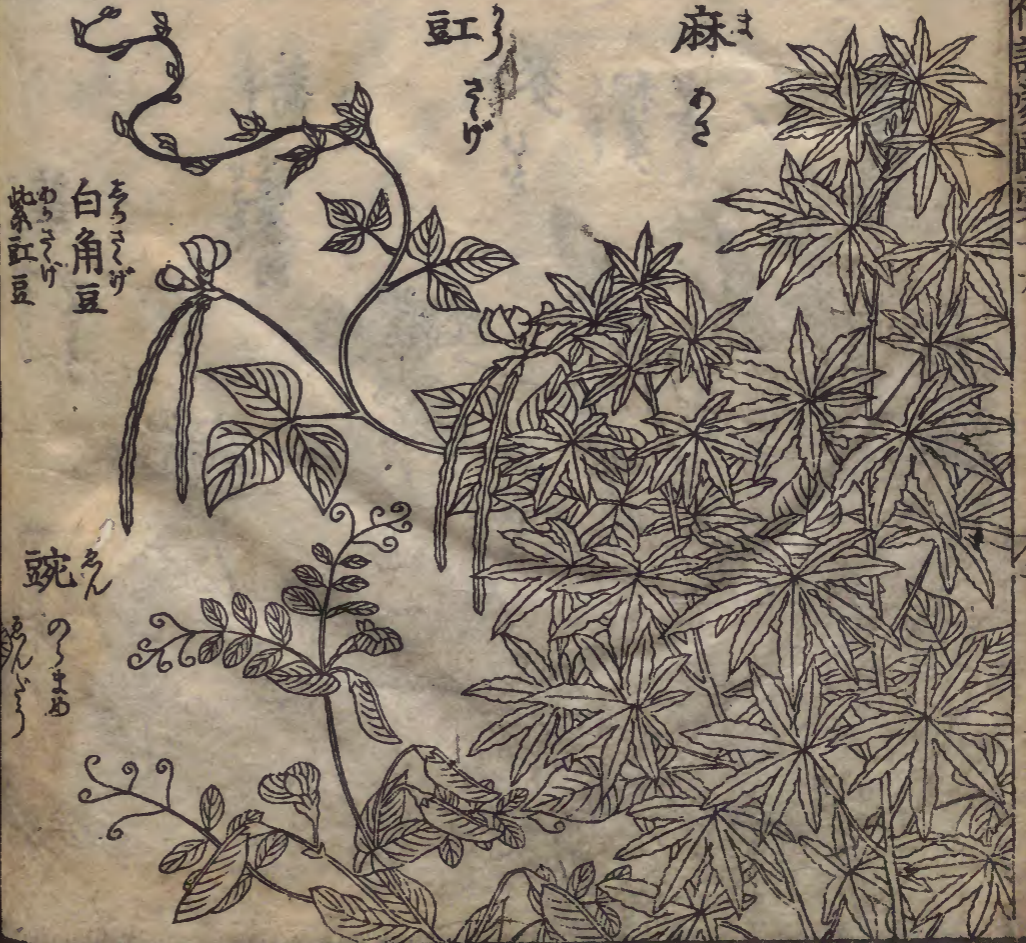 麻 ま
あさ
豇 かう
さゝげ
白角豆 しろさゝげ
紫豇豆 あかさゝげ
豌 ゑん
のらまめ
ゑんどう